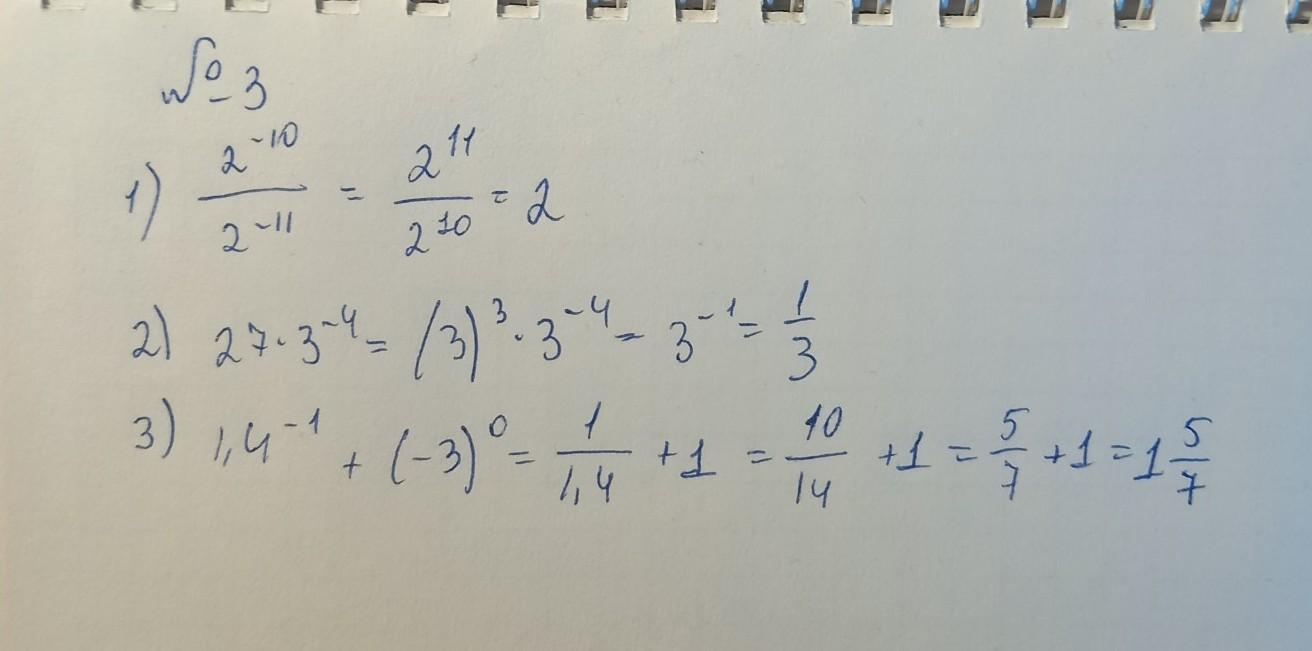 № 3
1) 2^-10 / 2^-11 = 2^11 / 2^10 = 2
2) 27 · 3^-4 = (3)^3 · 3^-4 = 3^-1 = 1/3
3) 1,4^-1 + (-3)^0 = 1/1,4 + 1 = 10/14 + 1 = 5/7 + 1 = 1 5/7